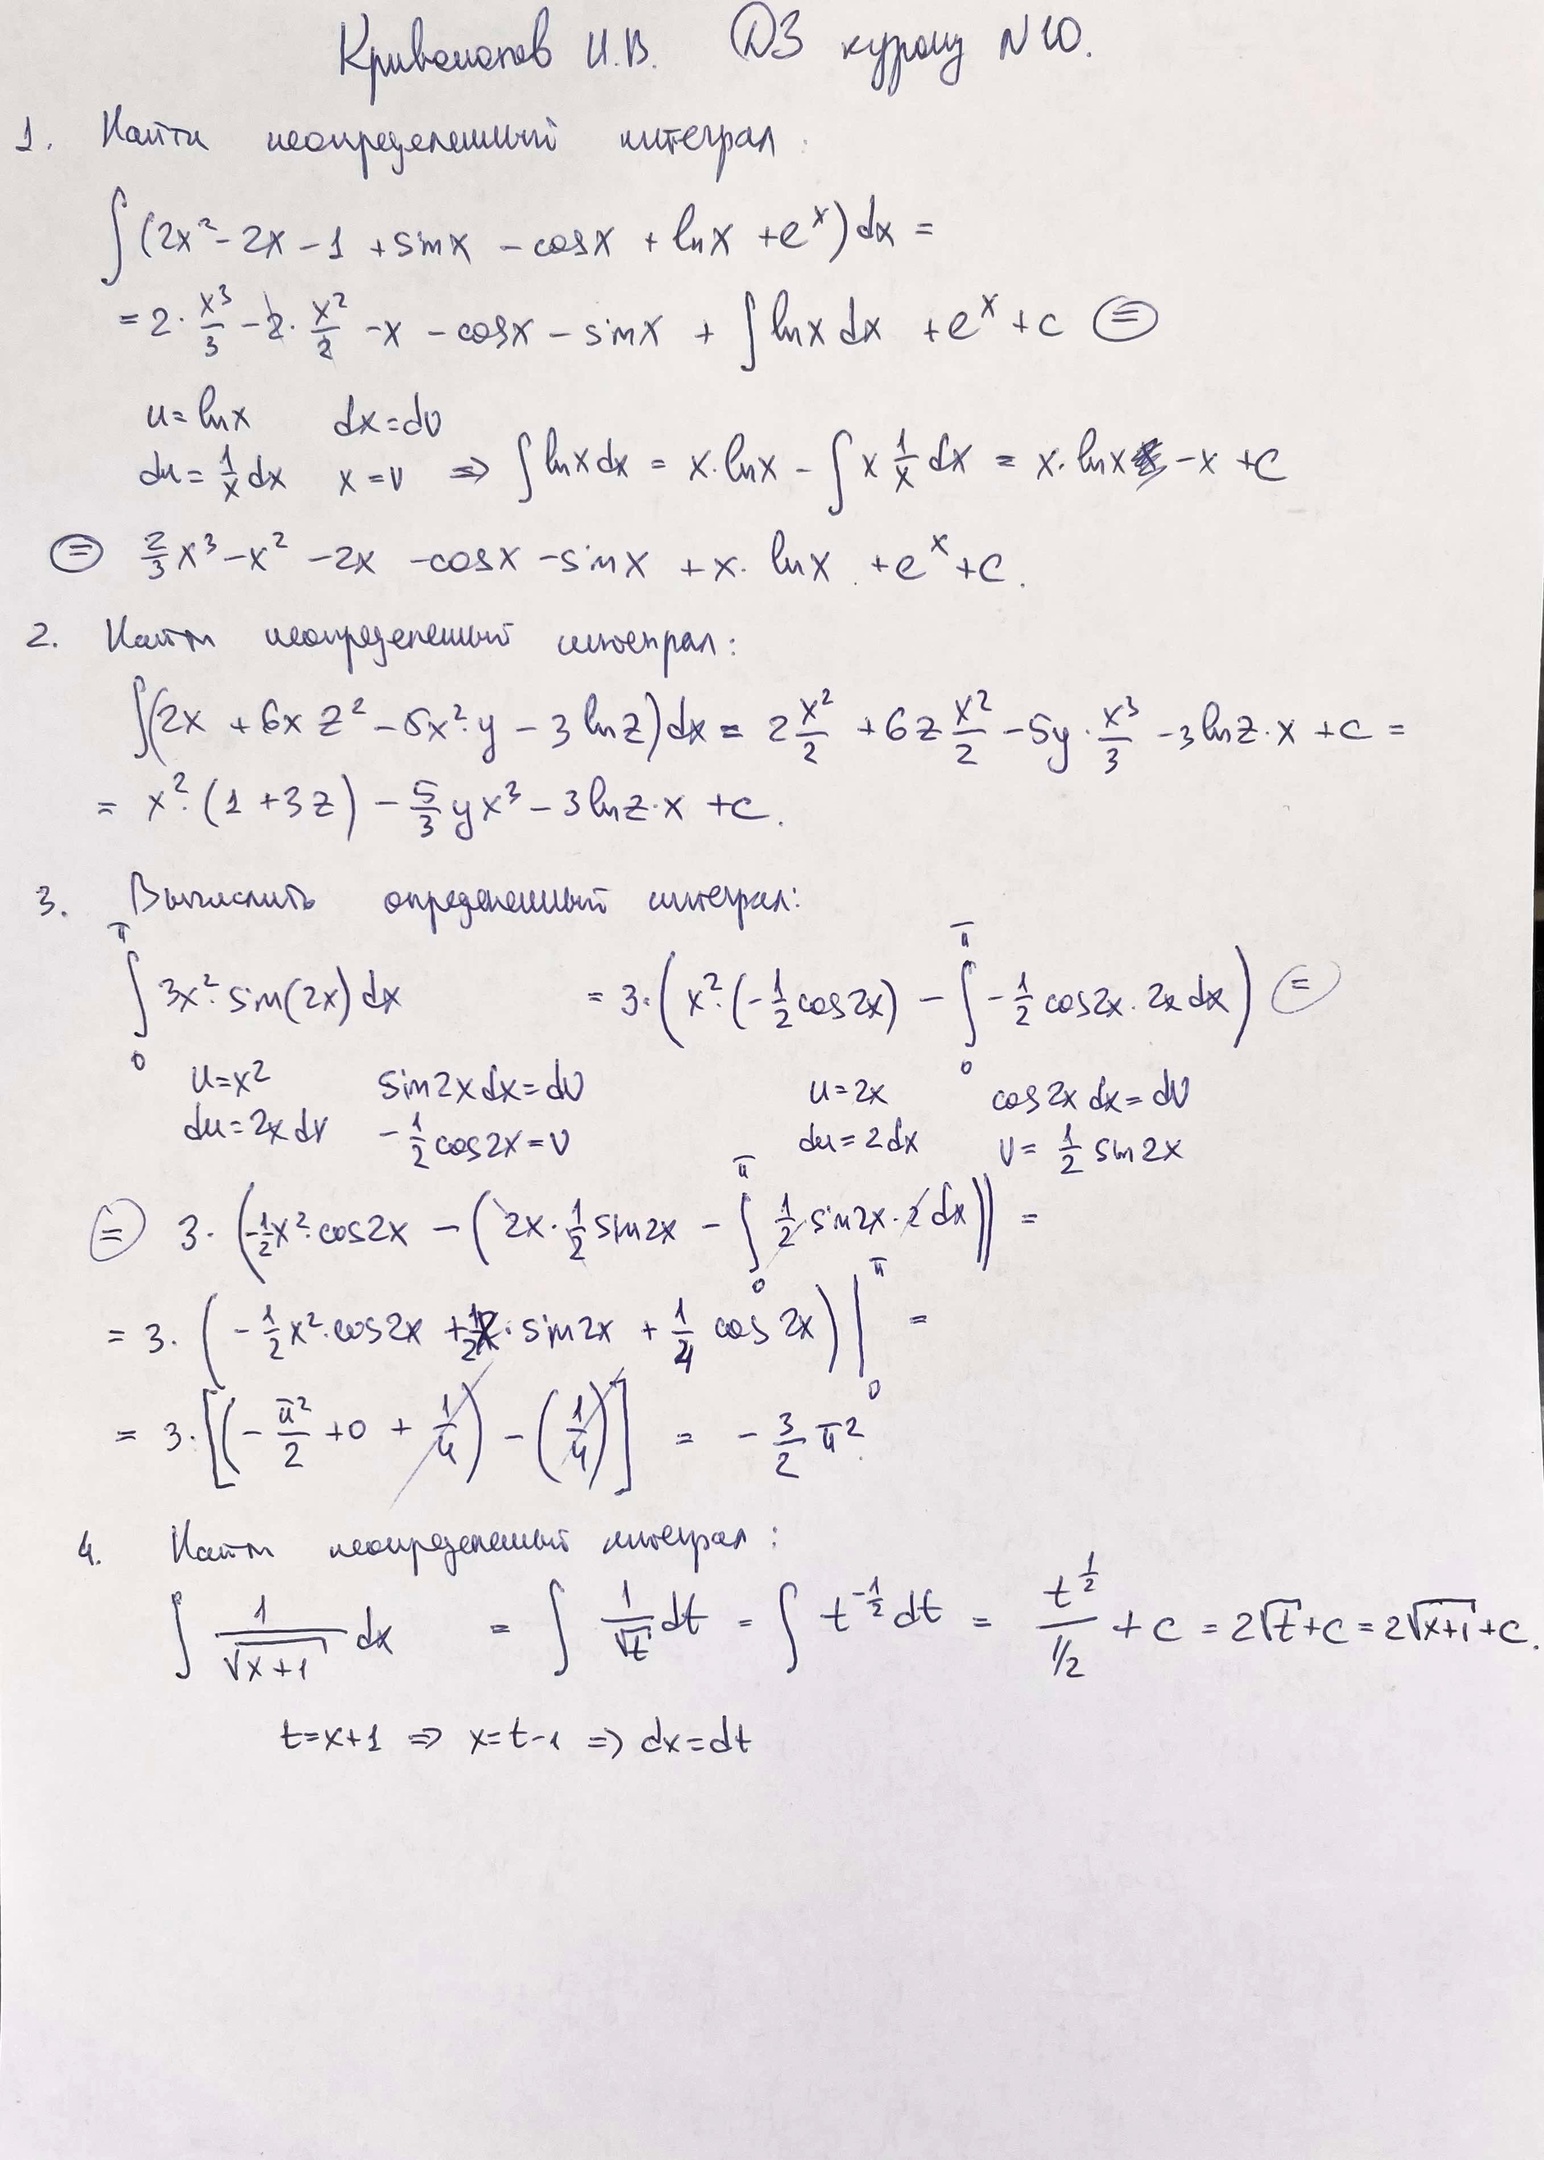 И.В. ДЗ к уроку №10.
1. Найти неопределенный интеграл:
∫(2x² - 2x - 1 + sinx - cosx + lnx + eˣ)dx =
= 2·x³/3 - 2·x²/2 - x - cosx - sinx + ∫lnx dx + eˣ + c ⊜
u = lnx dx = dv
du = 1/x dx x = v ⇒ ∫lnx dx = x·lnx - ∫x 1/x dx = x·lnx - x + c
⊜ 2/3 x³ - x² - 2x - cosx - sinx + x·lnx + eˣ + c.
2. Найти неопределенный интеграл:
∫(2x + 6x z² - 5x²·y - 3lnz)dx = 2 x²/2 + 6z x²/2 - 5y·x³/3 - 3lnz·x + c =
= x²·(1 + 3z) - 5/3 yx³ - 3lnz·x + c.
3. Вычислить определенный интеграл:
∫₀^π 3x²·sin(2x)dx = 3·(x²·(-1/2 cos2x) - ∫₀^π -1/2 cos2x·2x dx) ⊜
u = x² sin2x dx = dv u = 2x cos2x dx = dv
du = 2x dx -1/2 cos2x = v du = 2dx v = 1/2 sin2x
⊜ 3·(-1/2 x²·cos2x - (2x·1/2 sin2x - ∫₀^π 1/2 sin2x·2dx)) =
= 3·(-1/2 x²·cos2x + 1/2 x·sin2x + 1/4 cos2x)|₀^π =
= 3·[(-π²/2 + 0 + 1/4) - (1/4)] = -3/2 π².
4. Найти неопределенный интеграл:
∫ 1/√(x+1) dx = ∫ 1/√t dt = ∫ t^(-1/2) dt = t^(1/2)/(1/2) + c = 2√t + c = 2√(x+1) + c.
t = x+1 ⇒ x = t-1 ⇒ dx = dt